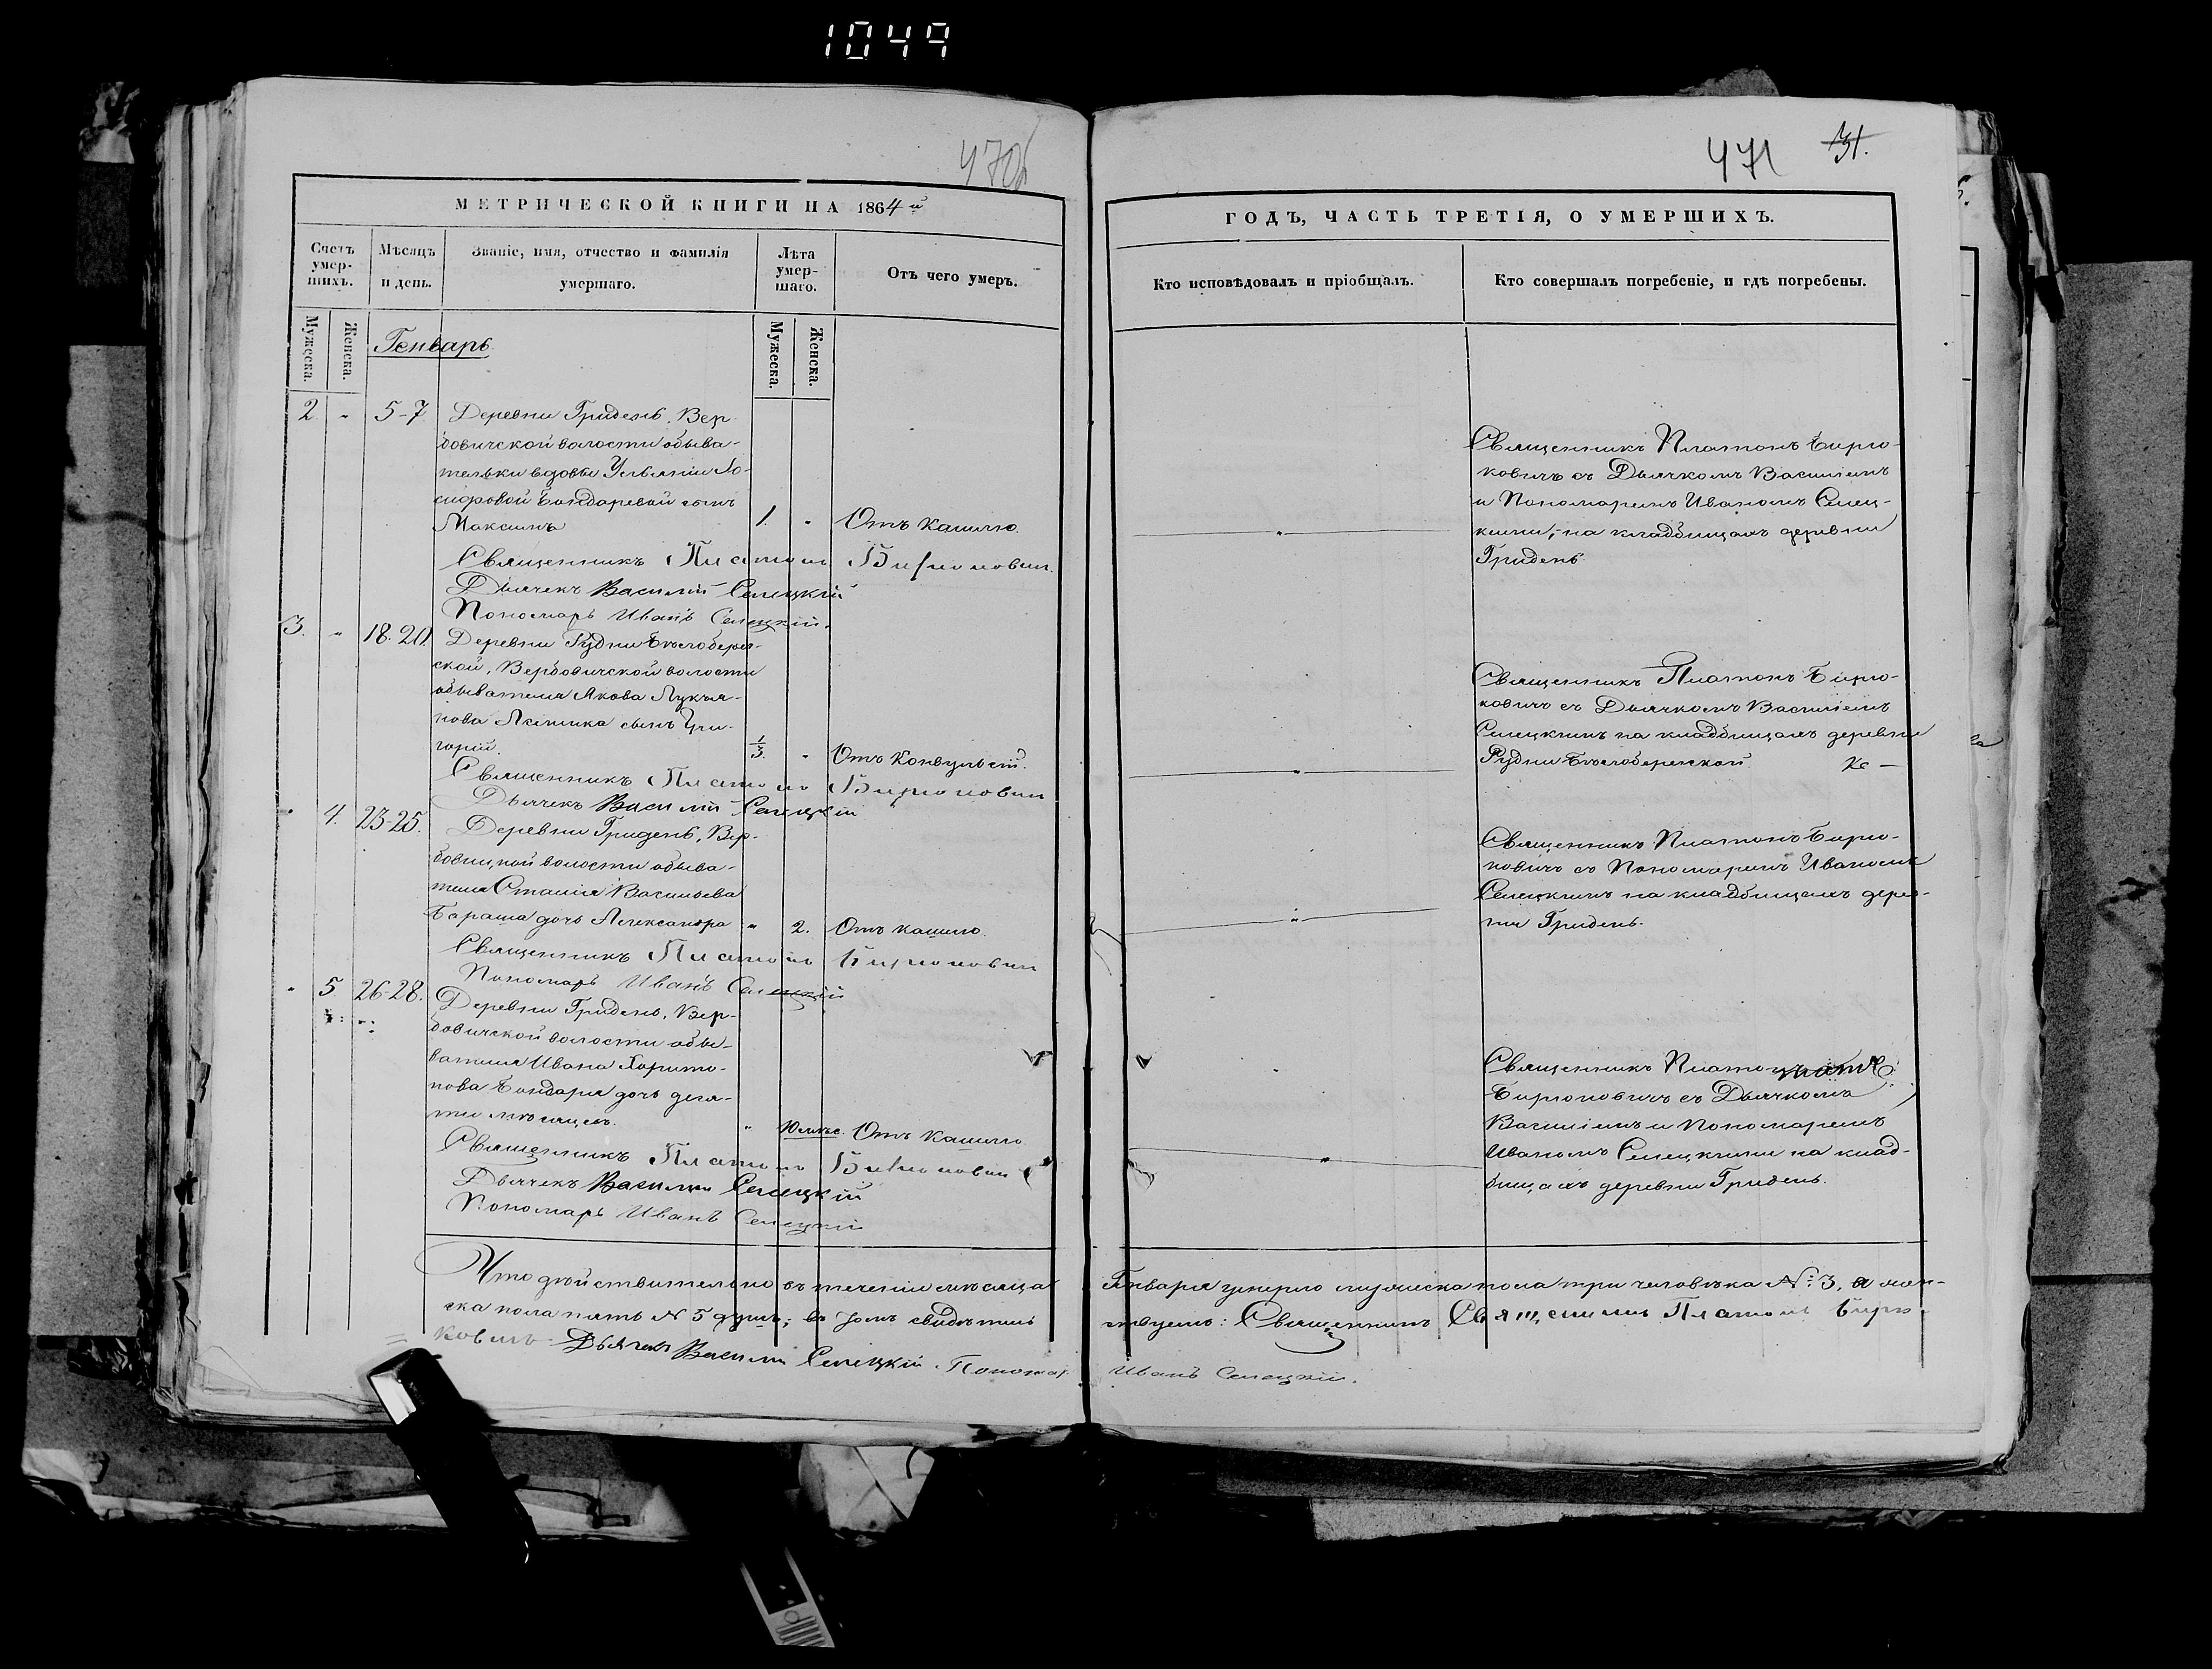 1049
470б
МЕТРИЧЕСКОЙ КНИГИ НА 1864й
Счетъ умер-шихъ.
Мѣсяцъ и день.
Званіе, имя, отчество и фамилія умершаго.
Лѣта умер-шаго.
Отъ чего умеръ.
Мужеска.
Женска.
Мужеска.
Женска.
Генварь
2. " 5-7
Деревни Гридень, Вер-
бовичской волости обыва-
тельки вдовы Ульяніи Іо-
сифовой Бондаревой сынъ
Максимъ 1. " Отъ кашлю.
Священникъ Платонъ Бирюковичъ
Дьячекъ Василій Селецкій
Пономарь Иванъ Селецкій.
3. " 18-20.
Деревни Рудни Бѣлобереж-
ской, Вербовичской волости
обывателя Якова Лукья-
нова сынъ Гри-
горій. 1/3. " Отъ Конвульсій.
Священникъ Платонъ Бирюковичъ
Дьячекъ Василій Селецкій
" 4. 23-25.
Деревни Гридень, Вер-
бовицкой волости обыва-
теля Васильева
Бараша дочь Александра " 2. Отъ кашлю.
Священникъ Платонъ Бирюковичъ
Пономарь Иванъ Селецкій
" 5 26-28.
Деревни Гридень, Вер-
бовичской волости обы-
вателя Ивана Харито-
нова Бондаря дочь деся-
ти мѣсяцевъ. " 10 мѣс. Отъ кашлю
Священникъ Платонъ Бирюковичъ
Дьячекъ Василій Селецкій
Пономарь Иванъ Селецкій
Что дѣйствительно въ теченіи мѣсяца
ска пола пять № 5 душъ; въ томъ свидѣтель
ковичъ Дьячекъ Василій Селецкій. Пономар
471 31.
ГОДЪ, ЧАСТЬ ТРЕТІЯ, О УМЕРШИХЪ.
Кто исповѣдовалъ и пріобщалъ.
Кто совершалъ погребеніе, и гдѣ погребены.
Священникъ Платонъ Бирю-
ковичъ съ Дьячкомъ Василіемъ
и Пономаремъ Иваномъ Селец-
кими, на кладбищахъ деревни
Гридень
Священникъ Платонъ Бирю-
ковичъ съ Дьячкомъ Василіемъ
Селецкимъ на кладбищахъ деревни
Рудни Бѣлобережской
Священникъ Платонъ Бирю-
ковичъ съ Пономаремъ Иваномъ
Селецкимъ на кладбищахъ дерев-
ни Гридень.
Священникъ Платонъ
Бирюковичъ съ Дьячкомъ
Василіемъ и Пономаремъ
Иваномъ Селецкими на клад-
бищахъ деревни Гридень.
Генваря умерло мужеска пола три человѣка №: 3, а жен-
ствуемъ: Священникъ Священникъ Платонъ Бирю-
Иванъ Селецкій.